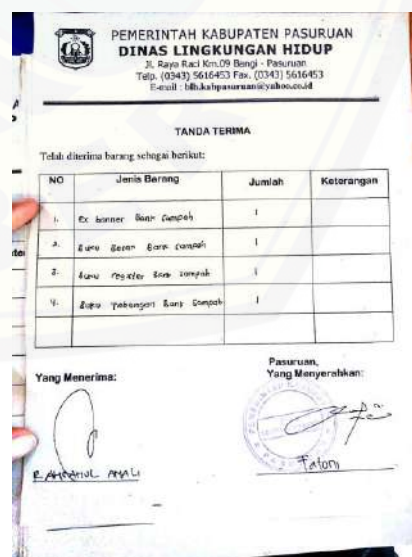 PEMERINTAH KABUPATEN PASURUAN
DINAS LINGKUNGAN HIDUP
Jl. Raya Raci Km.09 Bangil - Pasuruan
Telp. (0343) 5616453 Fax. (0343) 5616453
E-mail : blh.kabpasuruan@yahoo.co.id
TANDA TERIMA
Telah diterima barang sebagai berikut:
NO Jenis Barang Jumlah Keterangan
1. Ex banner Bank Sampah 1
2. Buku Besar Bank Sampah 1
3. Buku register Bank Sampah 1
4. Buku Tabungan Bank Sampah 1
Pasuruan,
Yang Menerima: Yang Menyerahkan:
Fatoni
AMALI